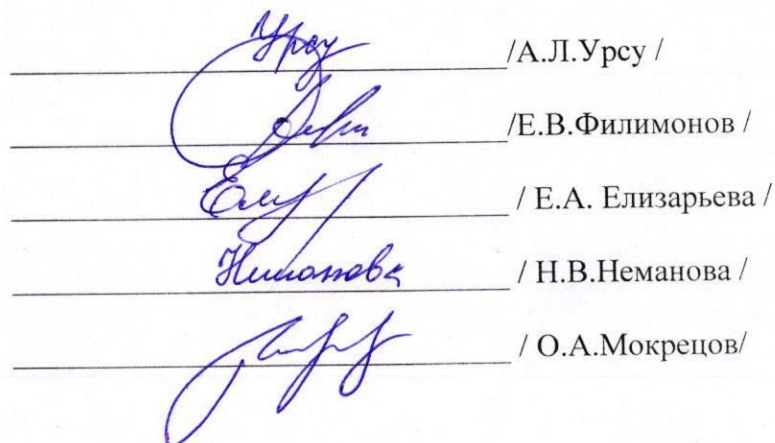 Урсу /А.Л.Урсу /
/Е.В.Филимонов /
/ Е.А. Елизарьева /
/ Н.В.Неманова /
/ О.А.Мокрецов/